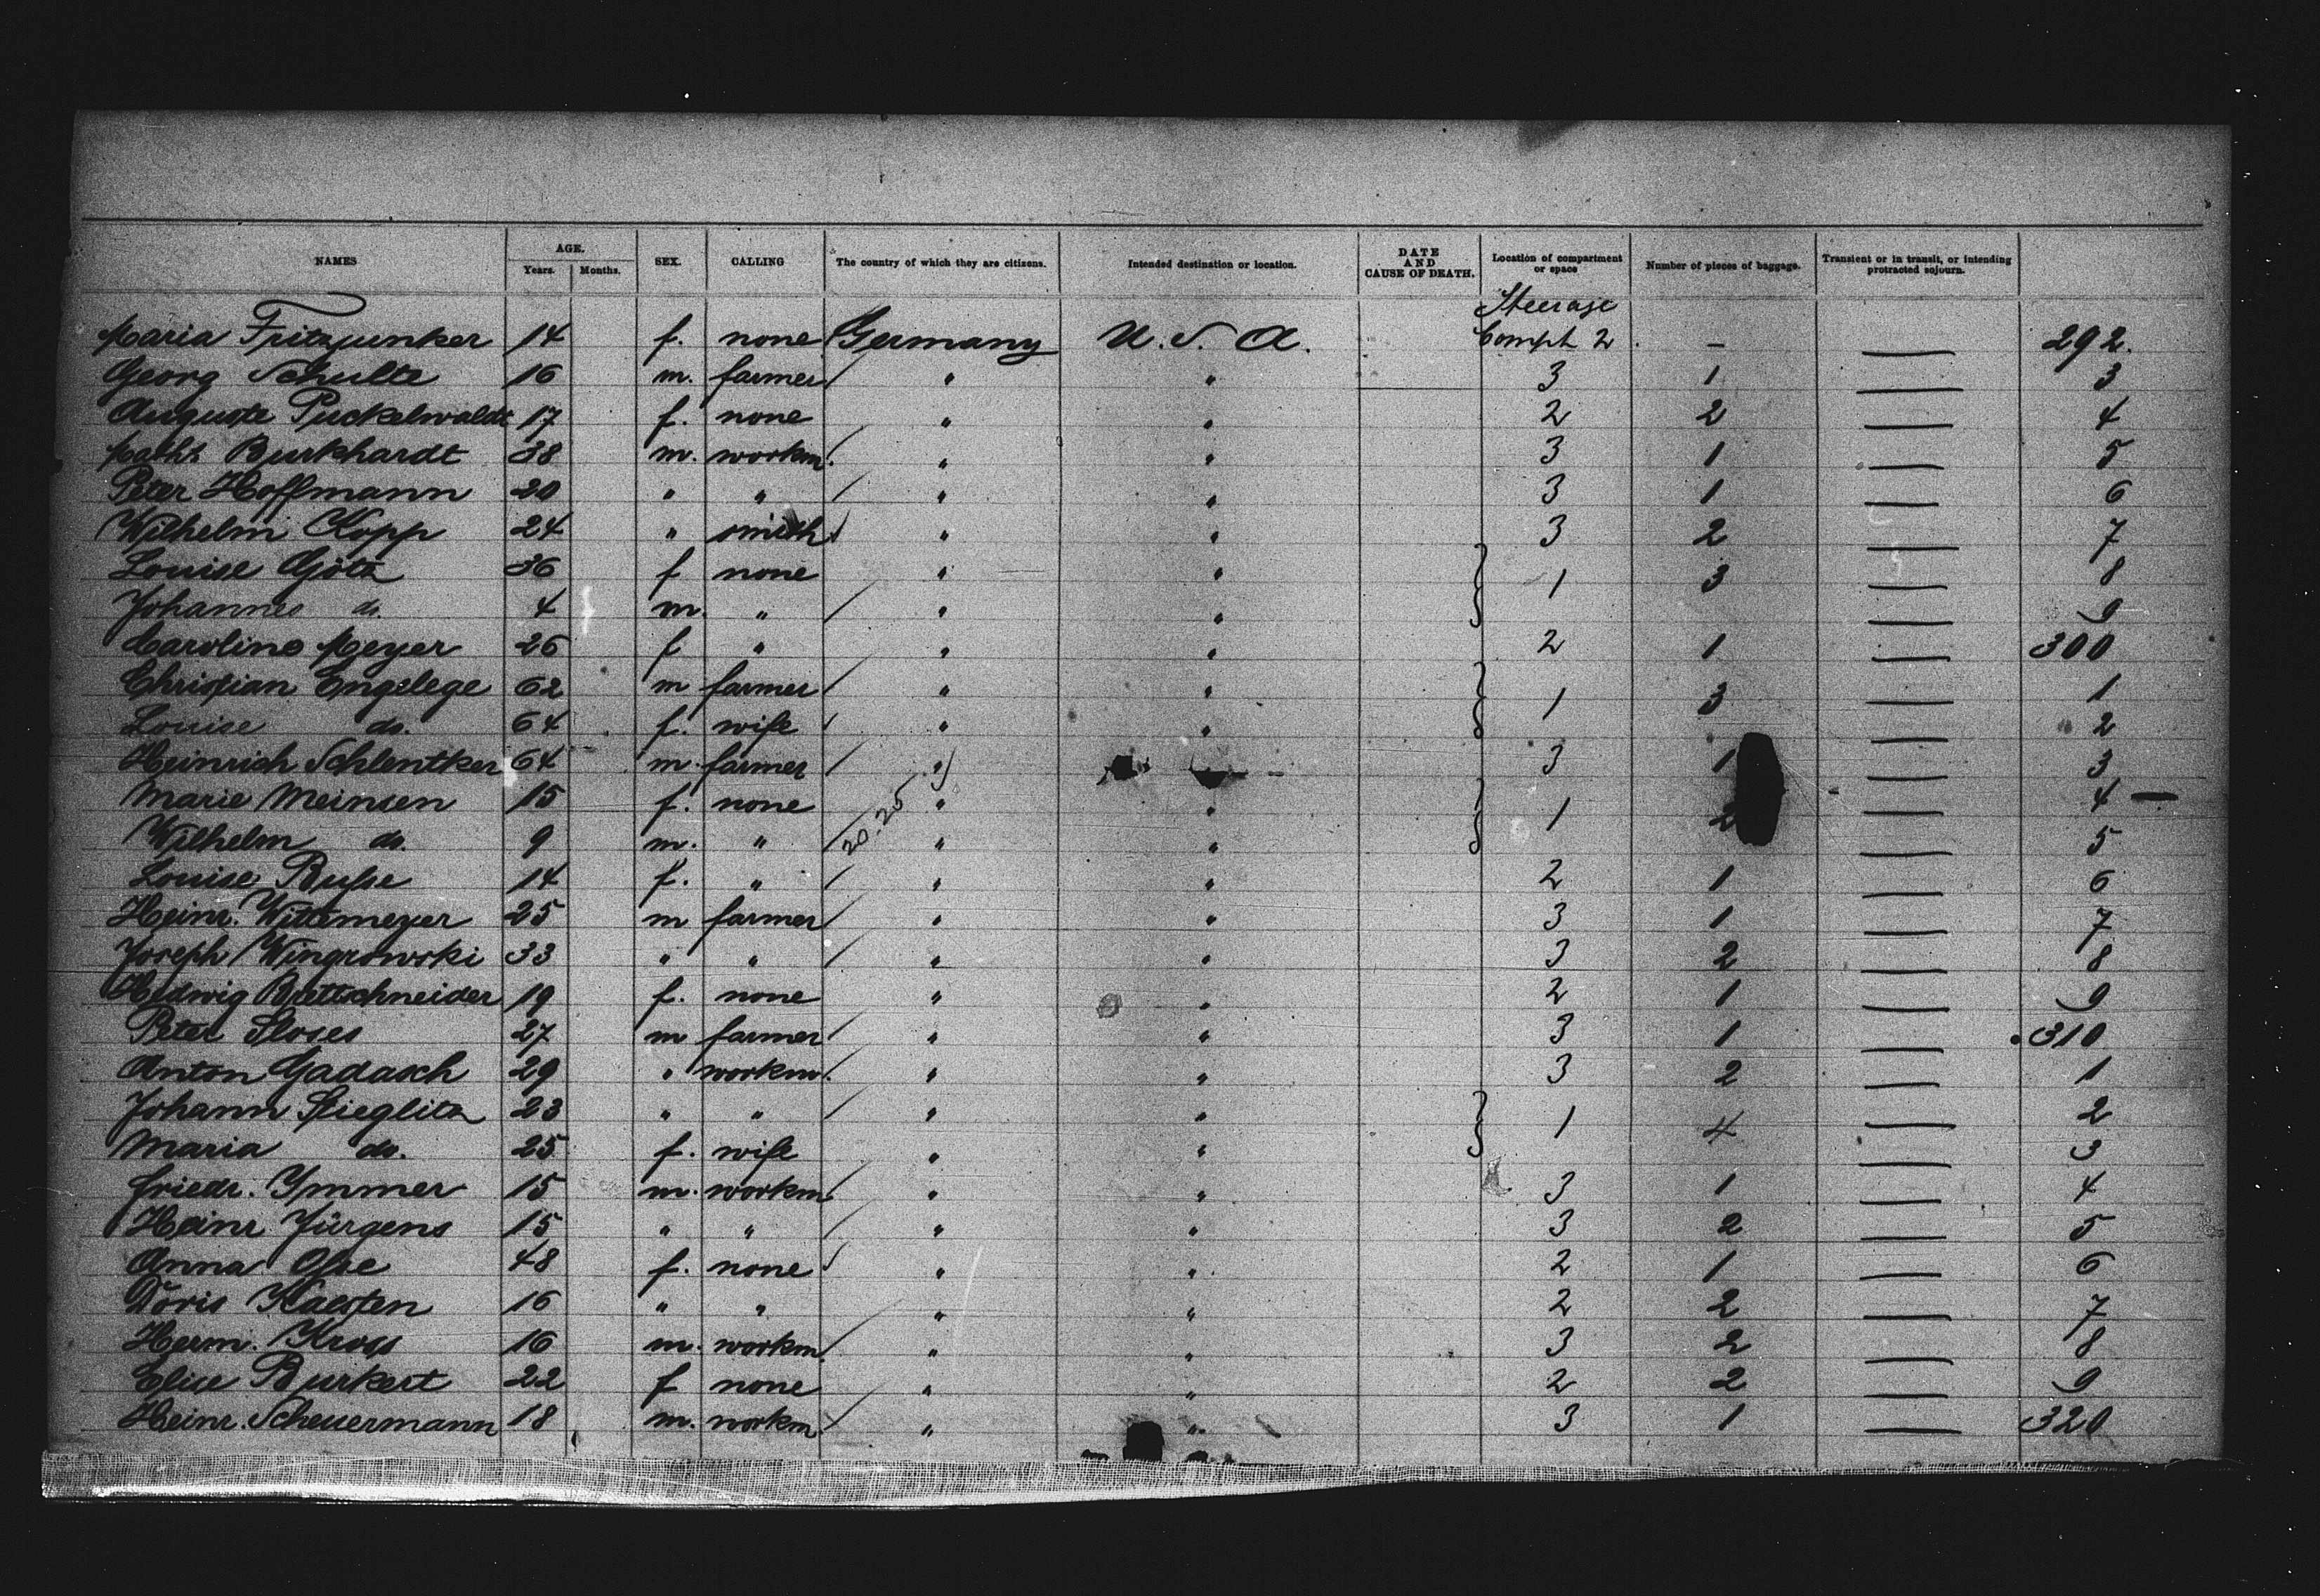 NAMES AGE. Years. Months. SEX. CALLING The country of which they are citizens. Intended destination or location. DATE AND CAUSE OF DEATH. Location of compartment or space Number of pieces of baggage. Transient or in transit, or intending protracted sojourn.
Steerage
Maria Fritzjunker 14 f. none Germany U. S. A. Compt 2. – — 292.
Georg Schulte 16 m. farmer " " 3 1 — 3
Auguste Puckelwaldt 17 f. none " " 2 2 — 4
Math. Burkhardt 38 m. workm. " " 3 1 — 5
Peter Hoffmann 20 " " " " 3 1 — 6
Wilhelm Kopp 24 " smith " " 3 2 — 7
Louise Götz 36 f none " " 1 3 — 8
Johannes do. 4 m. " " " — 9
Caroline Meyer 26 f " " " 2 1 — 300
Christian Engelege 62 m farmer " " 1 3 — 1
Louise do. 64 f. wife " " — 2
Heinrich Schlentker 64 m. farmer " 3 1 — 3
Marie Meinsen 15 f. none " " 1 2 — 4 —
Wilhelm do. 9 m. " 20.25 " " — 5
Louise Buße 14 f. " " " 2 1 — 6
Heinr. Wittemeyer 25 m farmer " " 3 1 — 7
Joseph Wingrowski 33 " " " " 3 2 — 8
Hedwig Brettschneider 19 f. none " " 2 1 — 9
Peter Sloses 27 m farmer " " 3 1 — 310
Anton Gadasch 29 " workm. " " 3 2 — 1
Johann Stieglitz 23 " " " " 1 4 — 2
Maria do. 25 f. wife " " — 3
Friedr. Ymmer 15 m. workm. " " 3 1 — 4
Heinr. Jürgens 15 " " " " 3 2 — 5
Anna Ohe 48 f. none " " 2 1 — 6
Doris Karsten 16 " " " " 2 2 — 7
Herm. Kross 16 m. workm. " " 3 2 — 8
Elise Burkert 22 f none " " 2 2 — 9
Heinr. Scheuermann 18 m. workm. " " 3 1 — 320